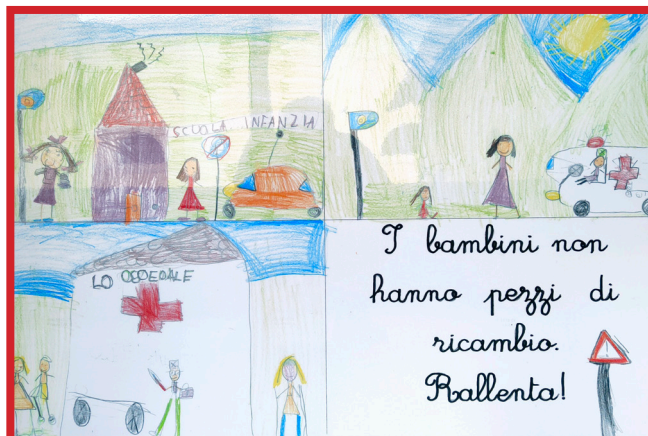 SCUOLA INFANZIA
LO OSPEDALE
I bambini non
hanno pezzi di
ricambio.
Rallenta!